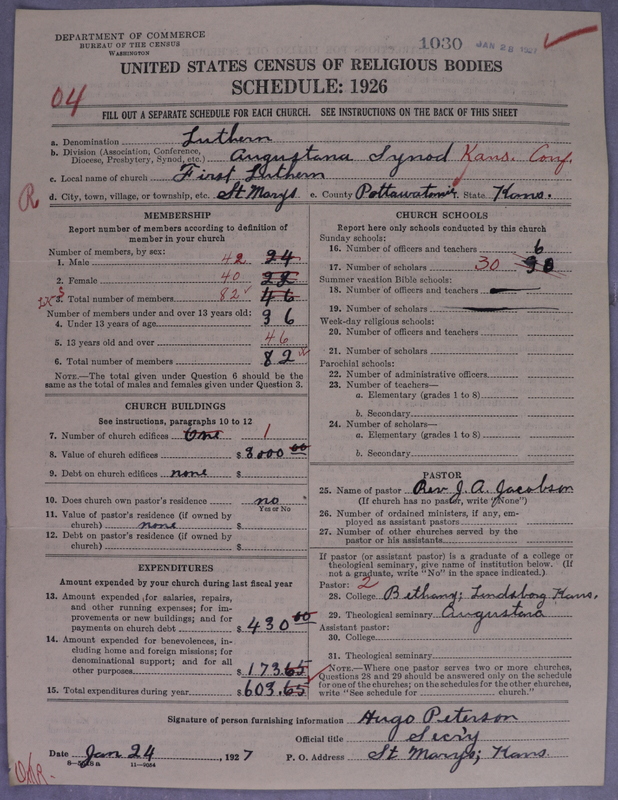 DEPARTMENT OF COMMERCE
BUREAU OF THE CENSUS
WASHINGTON
1030 JAN 28 1927
UNITED STATES CENSUS OF RELIGIOUS BODIES
SCHEDULE: 1926
04
FILL OUT A SEPARATE SCHEDULE FOR EACH CHURCH. SEE INSTRUCTIONS ON THE BACK OF THIS SHEET
a. Denomination Luthern
b. Division (Association, Conference, Diocese, Presbytery, Synod, etc.) Augustana Synod Kans. Conf.
c. Local name of church First Luthern
R
d. City, town, village, or township, etc. St Marys e. County Pottawatomie f. State Kans.
MEMBERSHIP
Report number of members according to definition of
member in your church
Number of members, by sex:
1. Male 42 24
2. Female 40 22
3. Total number of members 82 46
Number of members under and over 13 years old:
4. Under 13 years of age 36
5. 13 years old and over 46
6. Total number of members 82
NOTE.—The total given under Question 6 should be
the same as the total of males and females given under Question 3.
CHURCH BUILDINGS
See instructions, paragraphs 10 to 12
7. Number of church edifices One 1
8. Value of church edifices $ 8000 00
9. Debt on church edifices none $
10. Does church own pastor's residence no
Yes or No
11. Value of pastor's residence (if owned by
church) none $
12. Debt on pastor's residence (if owned by
church) $
EXPENDITURES
Amount expended by your church during last fiscal year
13. Amount expended for salaries, repairs,
and other running expenses; for im-
provements or new buildings; and for
payments on church debt $ 430 00
14. Amount expended for benevolences, in-
cluding home and foreign missions; for
denominational support; and for all
other purposes $ 173.65
15. Total expenditures during year $ 603.65
CHURCH SCHOOLS
Report here only schools conducted by this church
Sunday schools:
16. Number of officers and teachers 6
17. Number of scholars 30 30
Summer vacation Bible schools:
18. Number of officers and teachers
19. Number of scholars
Week-day religious schools:
20. Number of officers and teachers
21. Number of scholars
Parochial schools:
22. Number of administrative officers
23. Number of teachers—
a. Elementary (grades 1 to 8)
b. Secondary
24. Number of scholars—
a. Elementary (grades 1 to 8)
b. Secondary
PASTOR
25. Name of pastor Rev J. A. Jacobson
(If church has no pastor, write "None")
26. Number of ordained ministers, if any, em-
ployed as assistant pastors
27. Number of other churches served by the
pastor or his assistants
If pastor (or assistant pastor) is a graduate of a college or
theological seminary, give name of institution below. (If
not a graduate, write "No" in the space indicated.)
Pastor: 2
28. College Bethany; Lindsborg Kans.
29. Theological seminary Augustana
Assistant pastor:
30. College
31. Theological seminary
NOTE.—Where one pastor serves two or more churches,
Questions 28 and 29 should be answered only on the schedule
for one of the churches; on the schedules for the other churches,
write "See schedule for church."
Signature of person furnishing information Hugo Peterson
Official title Secr'y
Date Jan 24, 1927 P. O. Address St Marys; Kans.
11—9054